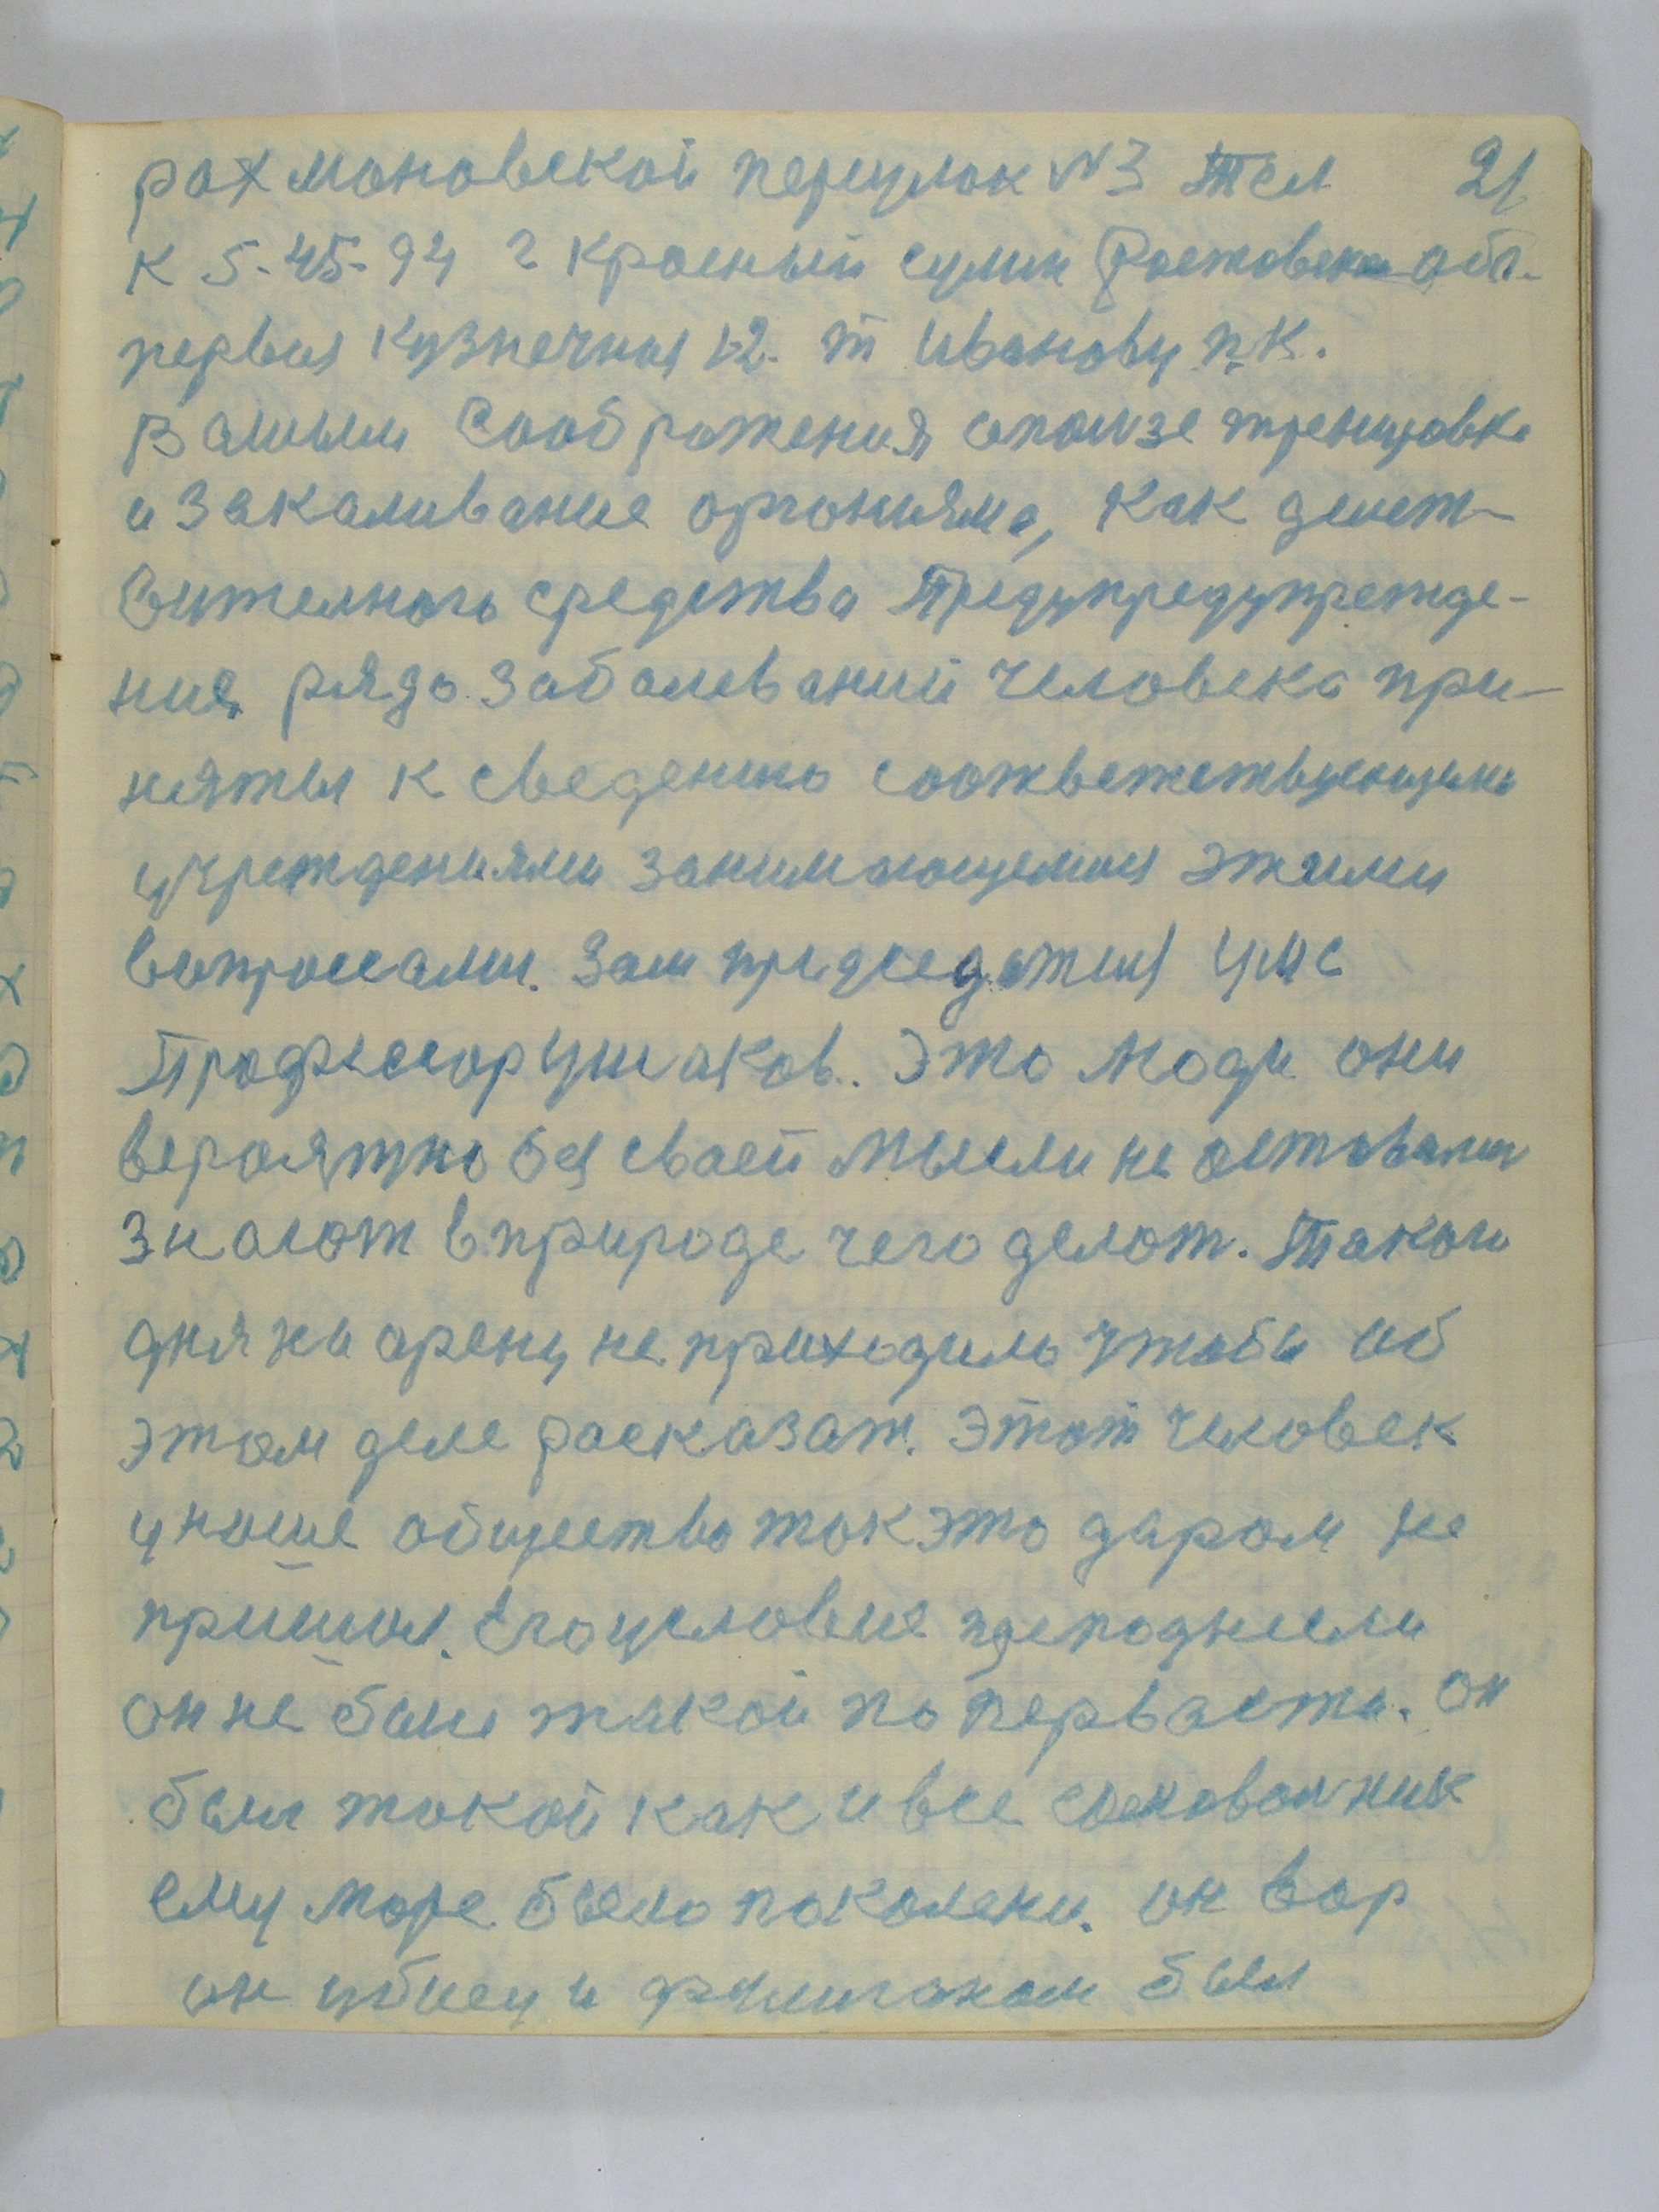 рахмоновской переулок №3 тел 21
К 5-45-94 г Красный сулин Ростовска обл.
первая Кузнечная 12. т Иванову п.К.
Вашими Соображения опользе тренировка
и Закаливание организма, Как дейст-
вителного средства Предупредупрежде-
ния ряда Заболеваний человека при-
няты к сведению соответствующими
учреждениями занимающемися этими
вопросами. Зам председателя УМС
Профессор Ушаков. Это люди они
вероятно без своей мысли не оставались
Знают вприроде чего делот. Такого
дня на арену не приходило чтобы об
этом деле расказат. Этот человек
у наше общество так это даром не
пришол. Его условие преподнесли
он не был такой по первасти. он
был такой как и все
ему море было паколени. он вор
он убиец и был